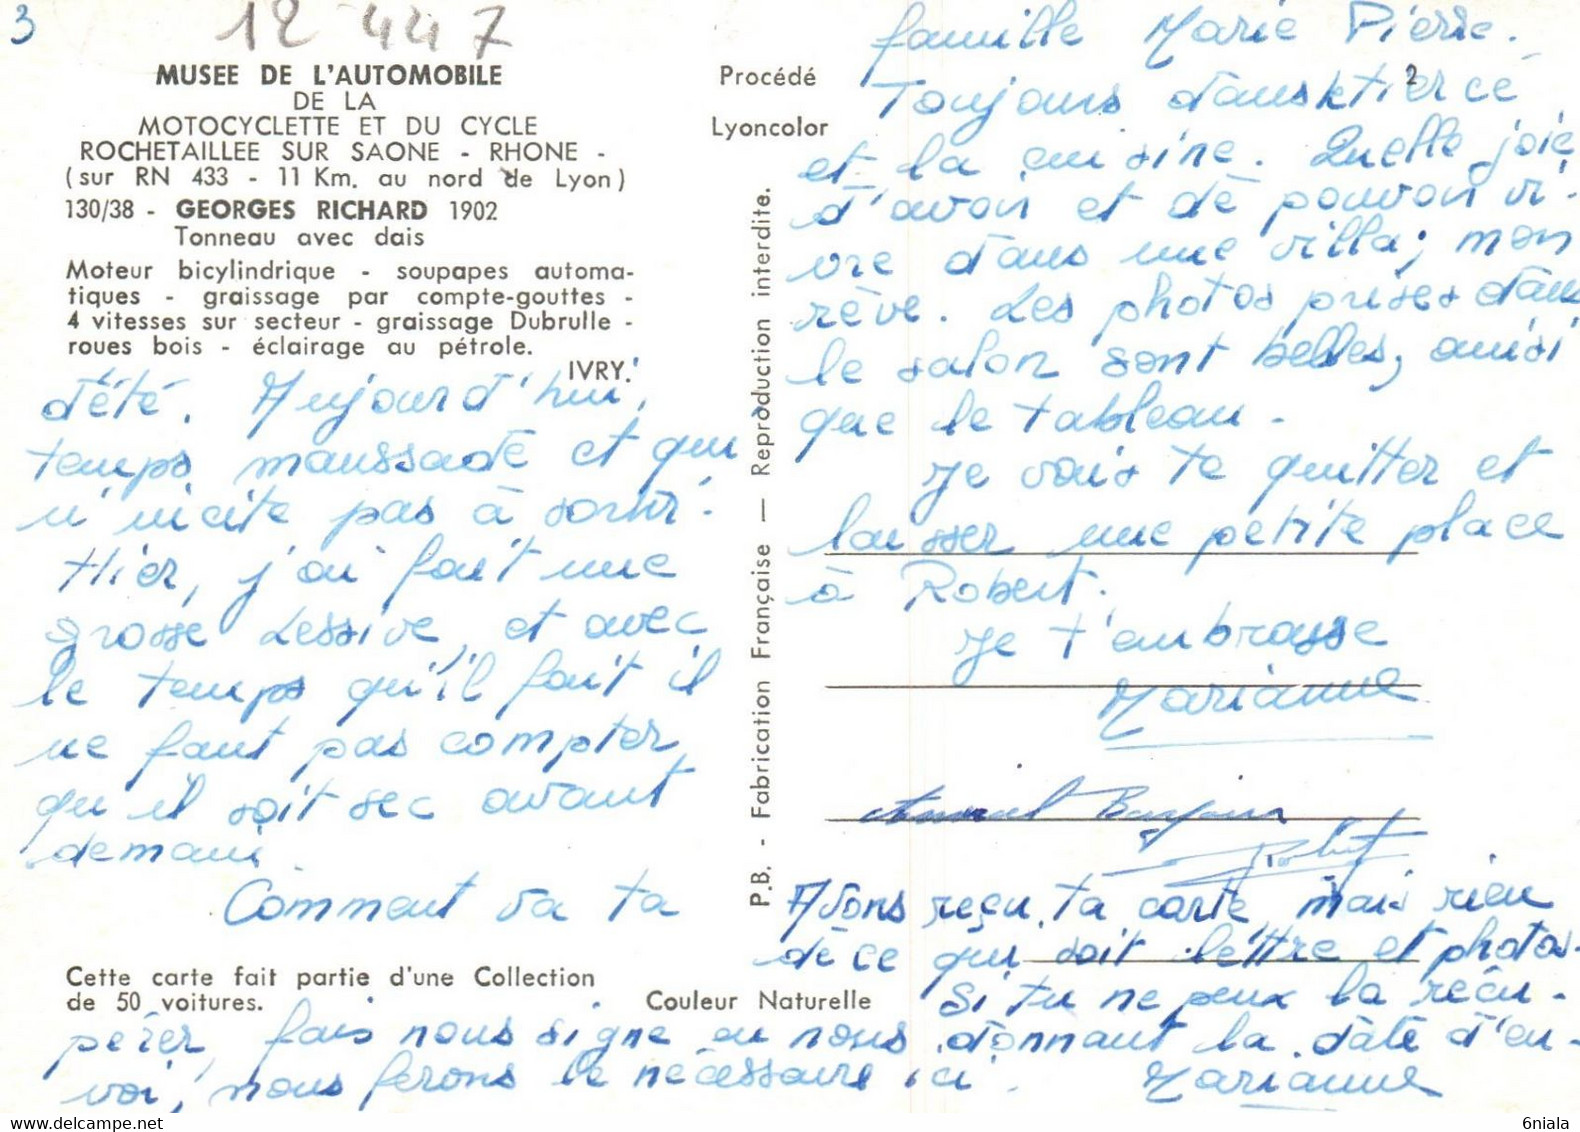 3
12 447
MUSEE DE L'AUTOMOBILE
DE LA
MOTOCYCLETTE ET DU CYCLE
ROCHETAILLEE SUR SAONE - RHONE -
(sur RN 433 - 11 Km. au nord de Lyon)
130/38 - GEORGES RICHARD 1902
Tonneau avec dais
Moteur bicylindrique - soupapes automa-
tiques - graissage par compte-gouttes -
4 vitesses sur secteur - graissage Dubrulle -
roues bois - éclairage au pétrole.
IVRY.
d'été. Aujourd'hui,
temps maussade et qui
n'incite pas à sortir.
Hier, j'ai fait une
grosse lessive, et avec
le temps qu'il fait il
ne faut pas compter
qu'il soit sec avant
demain.
Comment va ta
Cette carte fait partie d'une Collection
de 50 voitures.
Couleur Naturelle
Procédé
Lyoncolor
P.B. - Fabrication Française — Reproduction interdite.
famille Marie Pierre.
Toujours dans le tiercé
2
et la cuisine. Quelle joie
d'avoir et de pouvoir vi-
vre dans une villa; mon
rêve. Les photos prises dans
le salon sont belles, ainsi
que le tableau.
Je vais te quitter et
laisser une petite place
à Robert.
Je t'embrasse
Marianne
Amical Bonjour
Robert
Avons reçu ta carte, mais rien
de ce qui soit lettre et photos.
Si tu ne peux la récu-
pérer, fais nous signe en nous donnant la date d'en-
voi, nous ferons le nécessaire ici. Marianne
6niala